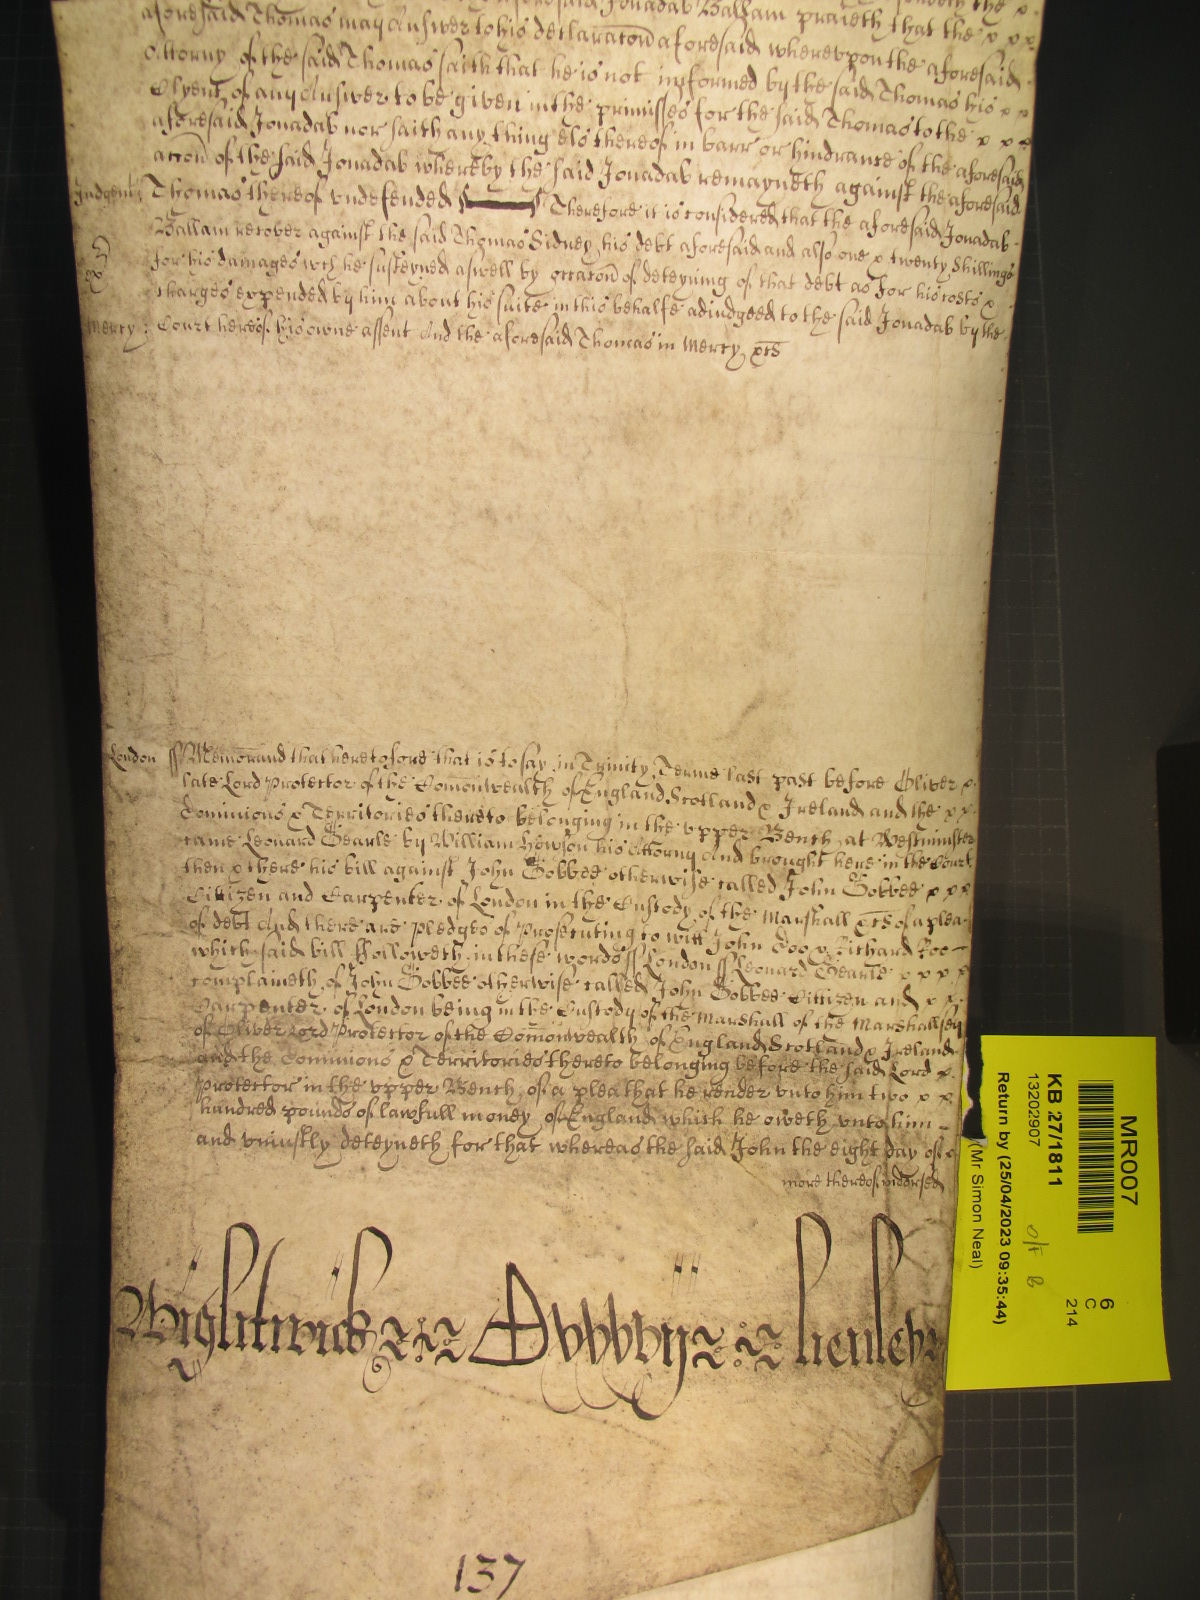 aforesaid Jonadab Ballam praieth that the x x x
aforesaid Thomas may Answer to his declaracon aforesaid wherevpon the aforesaid
Attorny of the said Thomas saith that he is not informed by the said Thomas his x x
Clyent of any Answer to be given in the primisses for the said Thomas to the x x x
aforesaid Jonadab nor saith any thing els thereof in barr or hindrance of the aforesaid
accon of the said Jonadab whereby the said Jonadab remayneth against the aforesaid
Judgent: Thomas thereof vndefended Therefore it is considered that the aforesaid Jonadab
Ballam recover against the said Thomas Sidney his debt aforesaid and also one x twenty shillings
for his damages wch he susteyned aswell by occacon of deteyning of that debt as for his costs x
ex
charges expended by him about his suite in this behalfe adiudged to the said Jonadab by the
Mercy: Court hereof his owne assent And the aforesaid Thomas in Mercy xcs
London ss Memorand that heretofore that is to say in Trinity Terme last past before Oliver x
late Lord Protector of the Comonwealth of England Scotland x Ireland and the x x
Dominions x Territories thereto belonging in the vpper Bench at Westminster
came Leonard Searle by William Howson his Attorny And brought here in the Court
then x there his bill against John Gobbee otherwise called John Gobbee x x x
Citizen and Carpenter of London in the Custody of the Marshall xcs of a plea
of debt And there are pledges of Prosecuting to witt John Doo x Richard Roo
which said bill Followeth in these words ss London ss Leonard Searle x x x x
complaineth of John Gobbee otherwise called John Gobbee Cittizen and x x
Carpenter of London being in the Custody of the Marshall of the Marshallsey
of Oliver Lord Protector of the Comonwealth of England Scotland x Ireland
and the Dominions x Territories thereto belonging before the said Lord x
Protector in the vpper Bench of a plea that he render vnto him two x x
hundred pounds of lawfull money of England which he oweth vnto him
and vniustly deteyneth for that whereas the said John the eight day of
more thereof indorsed
Wightwick Henley
137
MR007
6
C
214
KB 27/1811
13202907
Return by (25/04/2023 09:35:44)
(Mr Simon Neal)